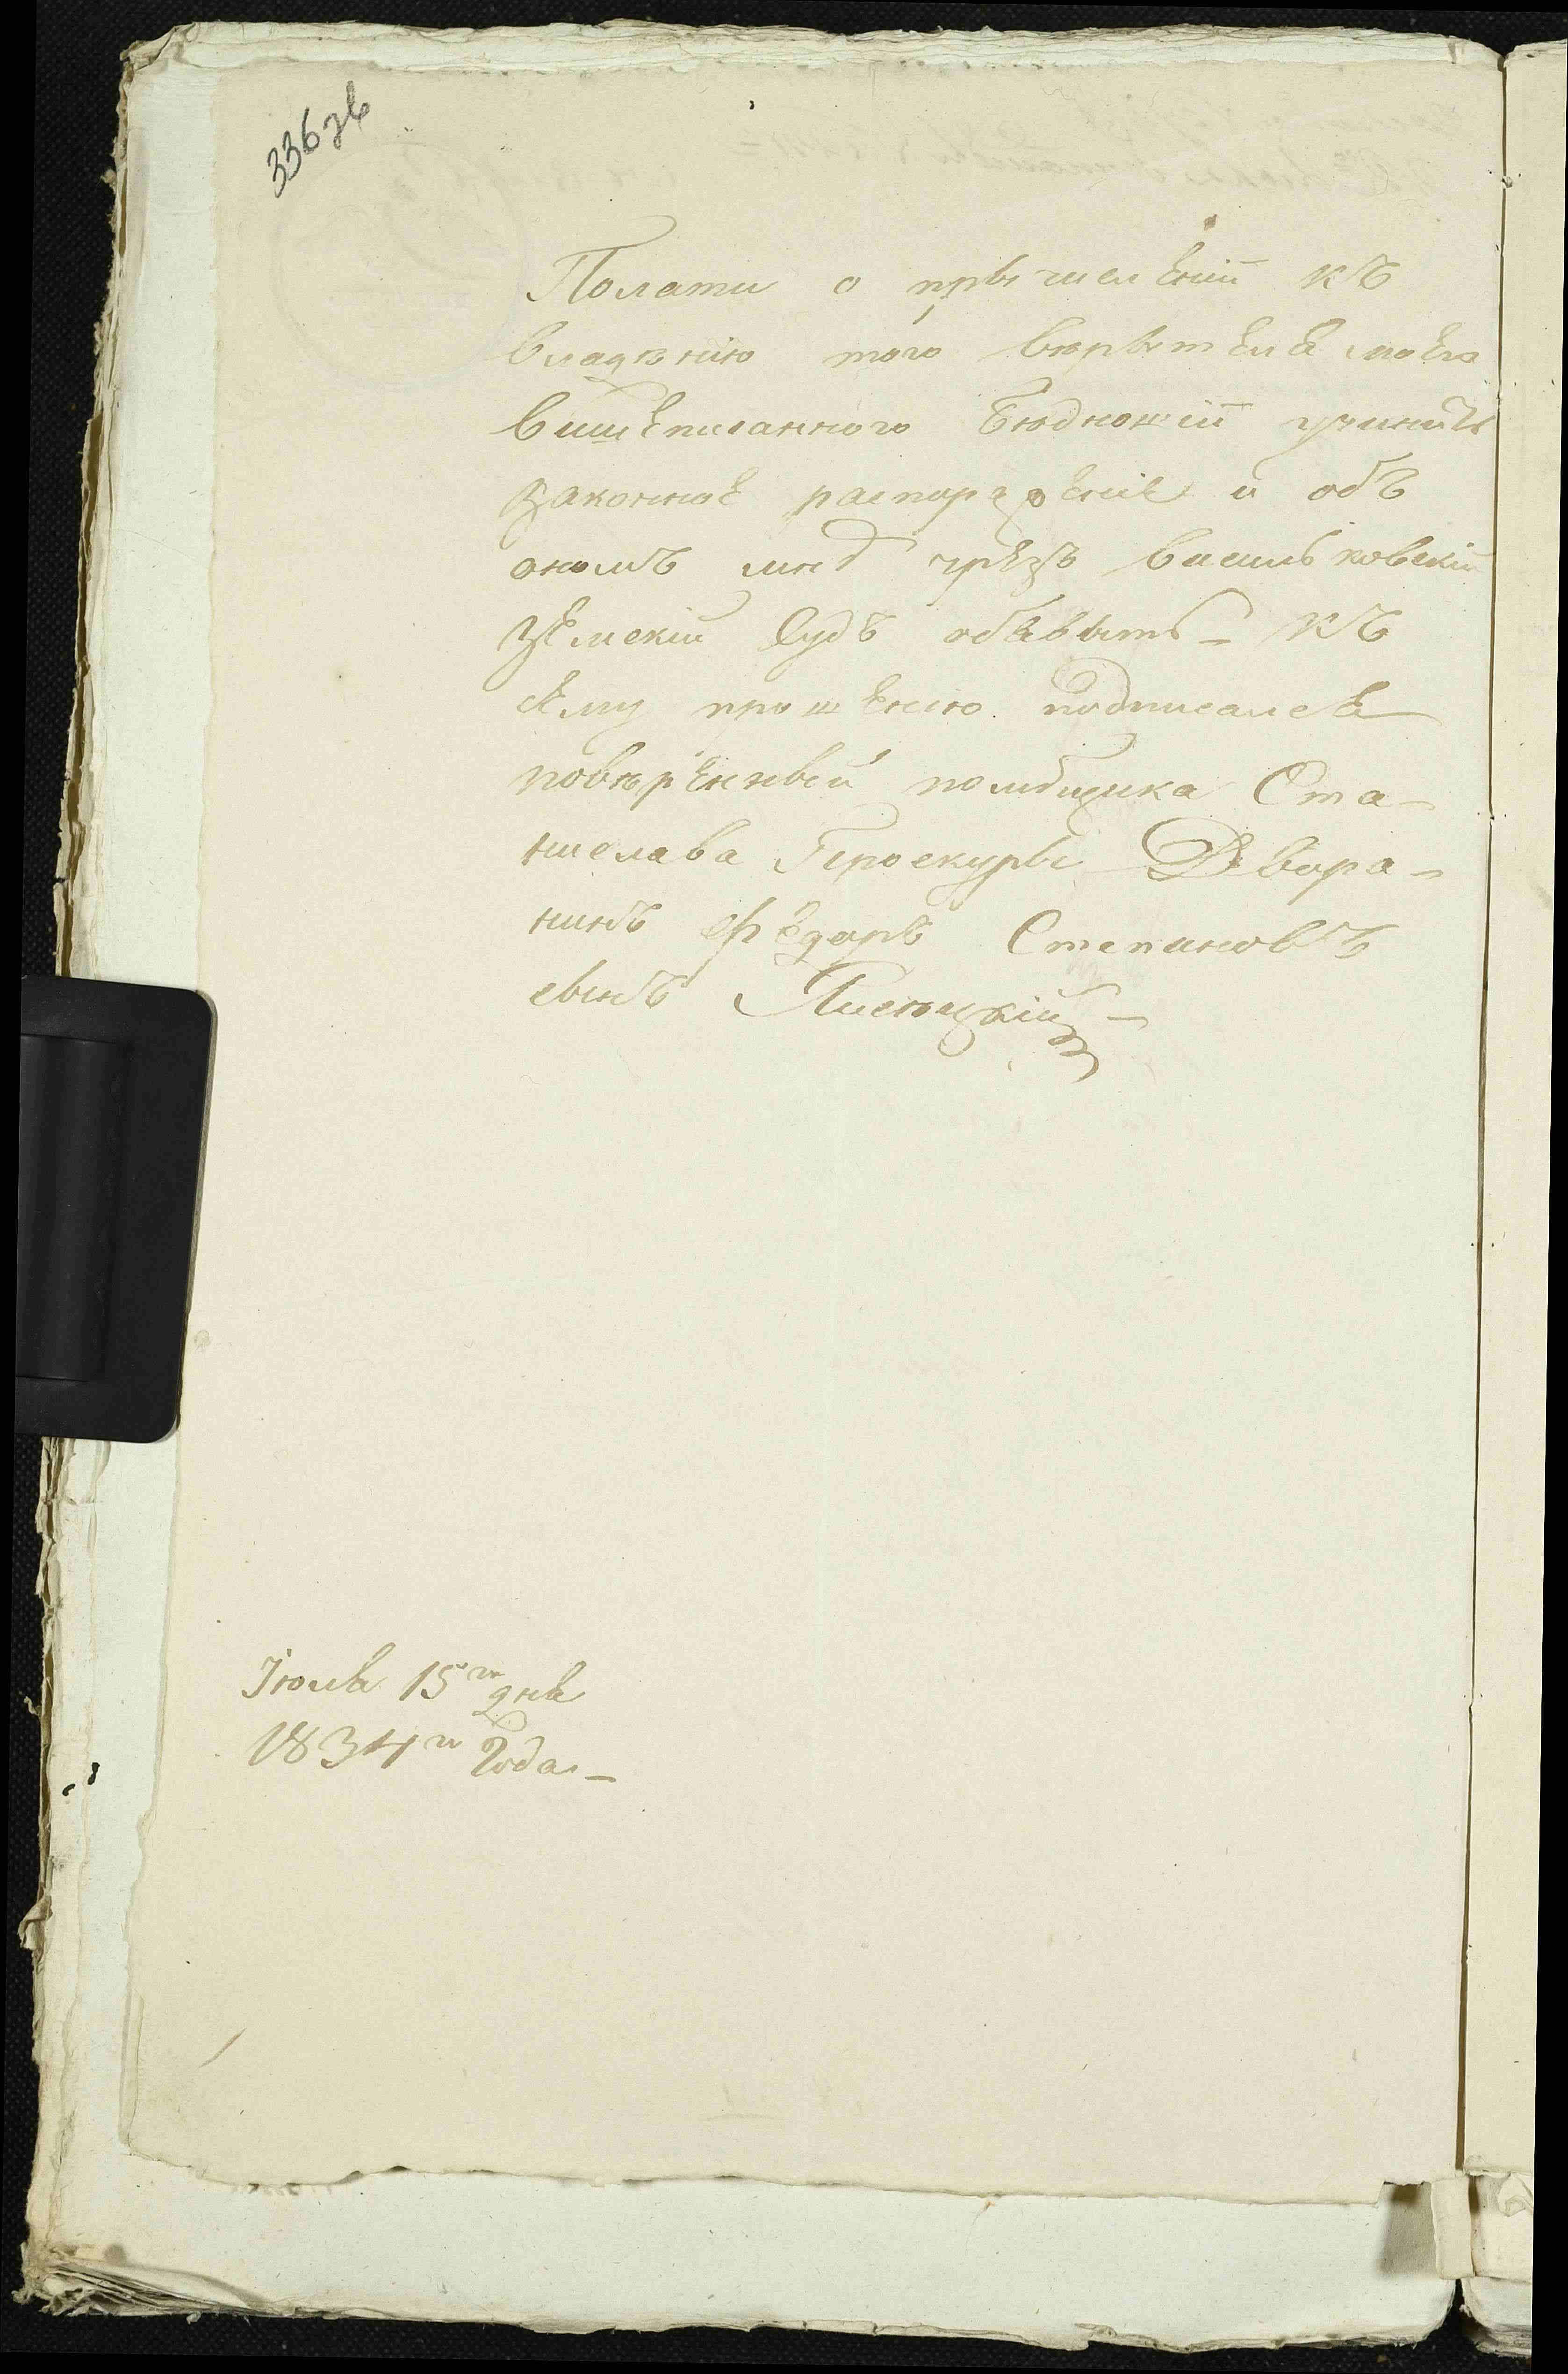 336 зв
Полати о прычисленіи къ
владѣнію того вѣрытеля моего
вишеписанного Бюдножіи учинить
законное распоряженіе и объ
ономъ мнѣ чрезъ васильковскій
Земскій Судъ объявыть – Къ
сему прошенію подписался
повѣренный помѣщика Ста–
нислава Проскуры Двора–
нинъ Федоръ Степановъ
сынъ –
Іюля 15го дня
1834го Года –